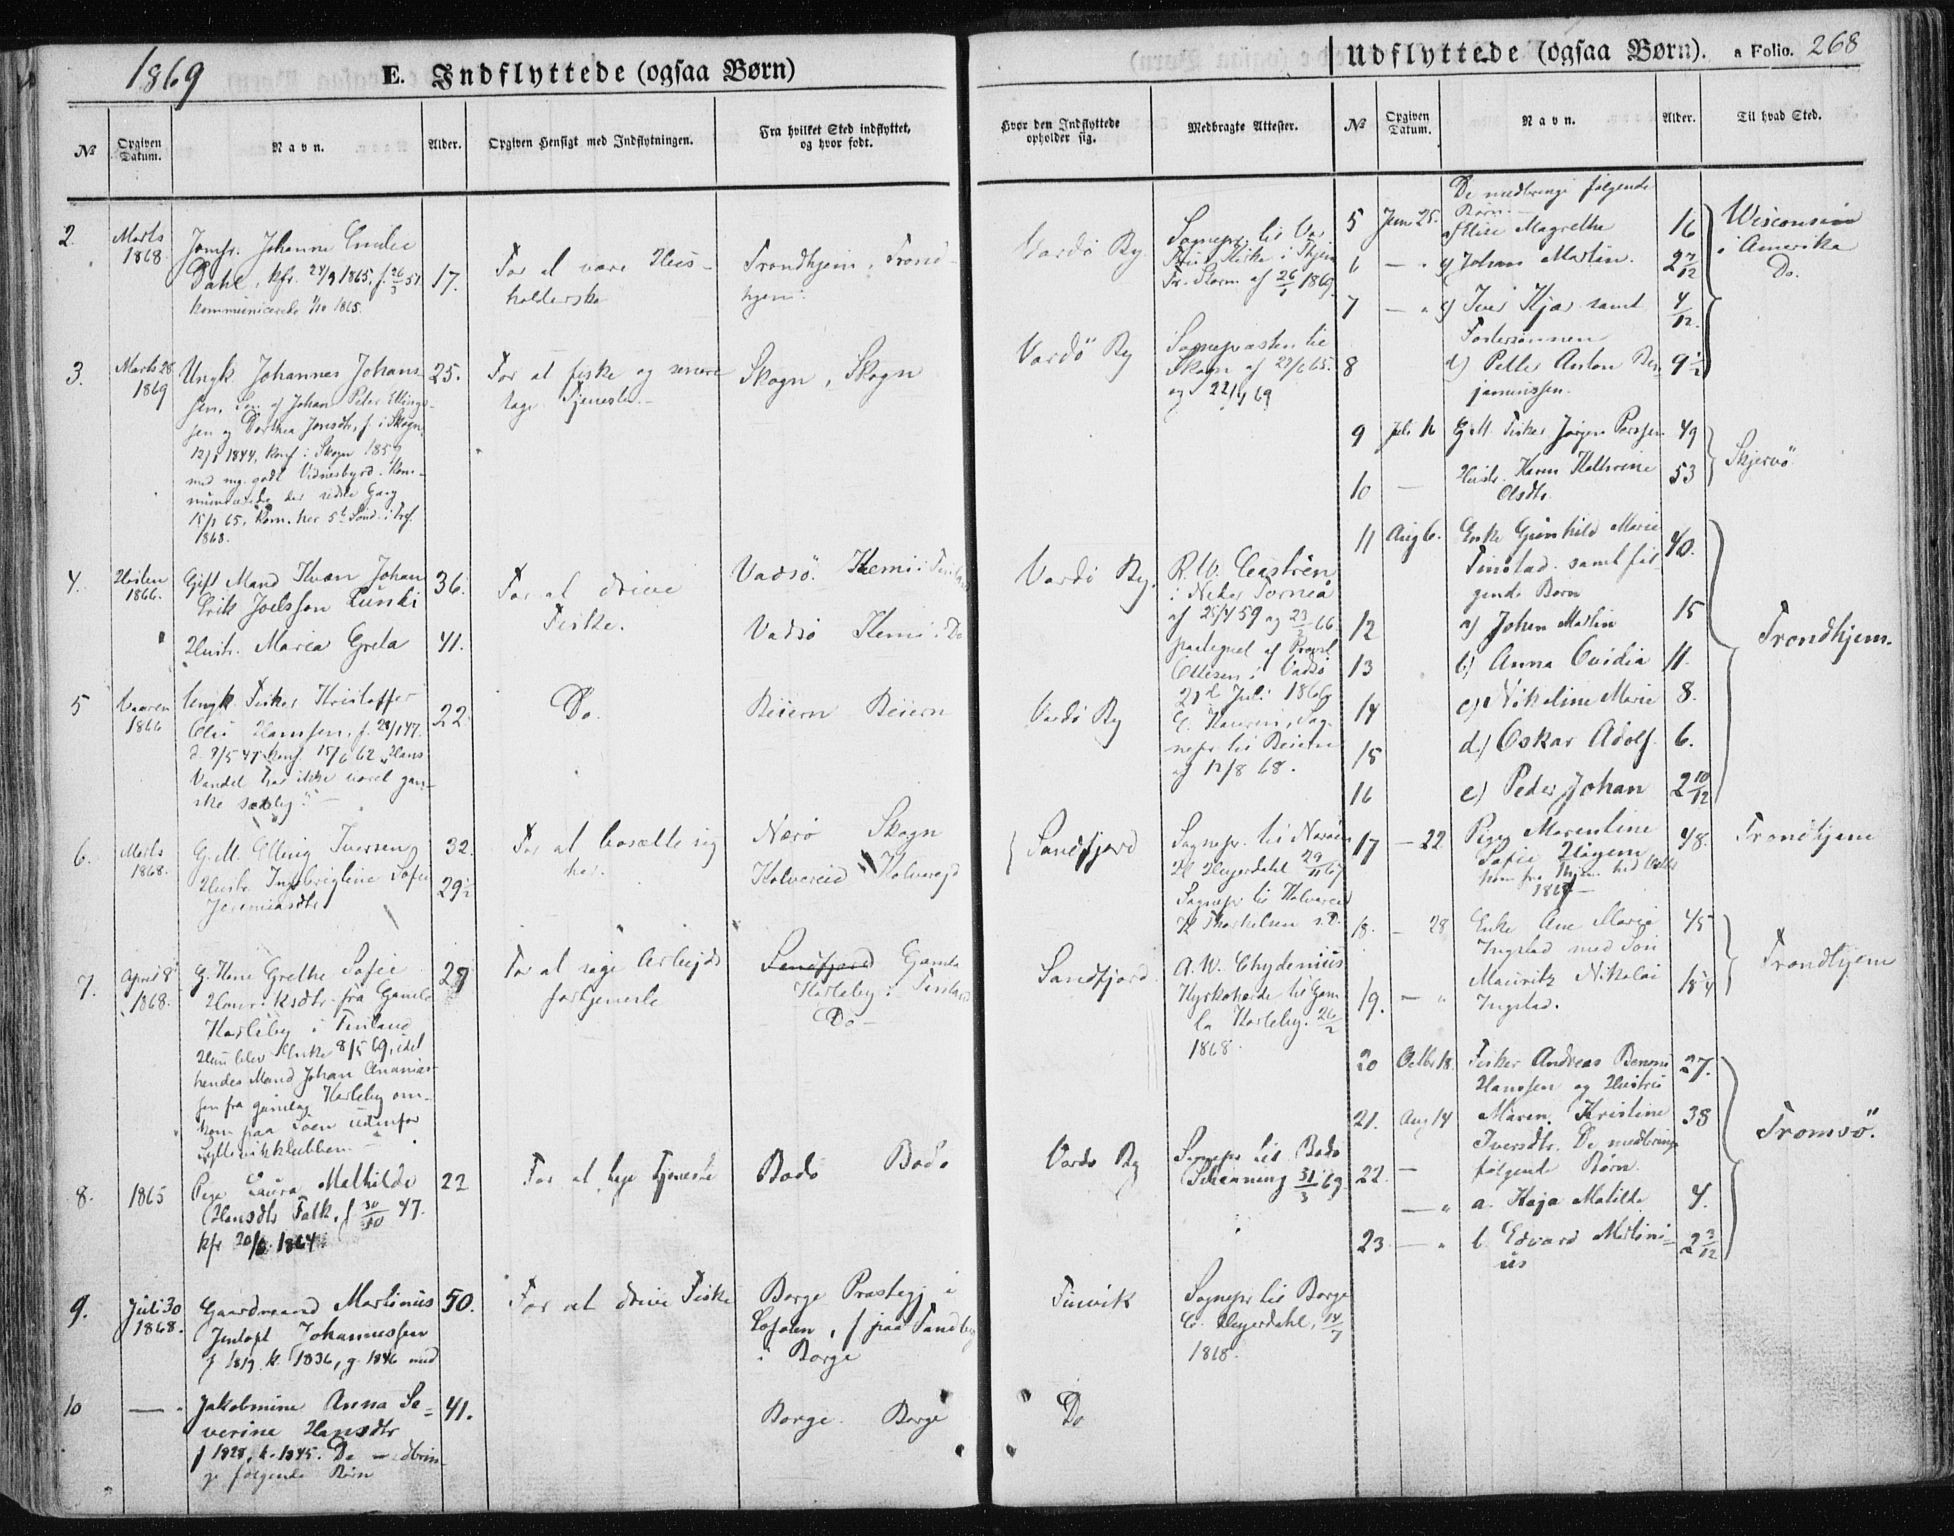 1869
E. Indflyttede (ogsaa Børn)
№
Opgiven Datum.
Navn.
Alder.
Opgiven Hensigt med Indflytningen.
Fra hvilket Sted indflyttet,
og hvor født.
2.
Marts
1868
Jomfr. Johanne Emilie
Dahl, kfr. 24/9 1865, f. 26/3 51
kommunicerede 1/10 1865.
17.
For at være Huus-
holderske
Trondhjem, Trond-
hjem
3.
Marts 28
1869
Ungk. Johannes Johans-
sen, Søn af Johan Peter Ellings-
sen og Dorthea Jonsdtr, f. i Skogn
12/1 1844, konf. i Skogn 1859
med mg. godt Vidnesbyrd. Kom-
municerede der sidste Gang
15/1 65. Kom. her 5te Sønd. i
1868.
25.
For at fiske og senere
tage Tjeneste.
Skogn, Skogn
4.
Høsten
1866.
Gift Mand Kvæn Johan
Erik Joelssen Runki
36.
For at drive
Fiske.
Vadsö. Kemi i Finland
Hustr. Maria Greta
41.
Vadsö Kemi i Do
5
Vaaren
1866
Ungk. Fisker Kristoffer
Olai Hanssen, f. 28/1 47.
d. 9/5 47 konf 15/6 62 "Hans
Vandel har ikke været gan-
ske sædelig."
22
Do.
Beiern Beiern
6.
Marts
1868.
G.M. Elling Iversen
32.
For at bosætte sig
her.
Nærö Skogn
Hustr. Ingebrigtine Sofie
Jeremiasdtr
29½
Kolvereid Kolvereid
7.
April 8
1868.
G. Kone Grethe Sofie
Henriksdtr fra Gamle
Karleby i Finland
Hun blev Enke 8/5 69, idet
hendes Mand Johan Ananias-
sen fra gamle Karleby om-
kom paa Søen udenfor
29
For at søge Arbejds
fortjeneste
Sandfjord Gamle
Karleby i Finland
Do
8.
1865
Pige Laura Mathilde
Hansdtr Falk, f 30/10 47.
kfr 20/6 1864
22
For at tage Tjeneste
Bodö Bodö
9.
Juli 30
1868.
Gaardmand Martinus
Johannessen
f 1819. k. 1836, g. 1846 med
50.
For at drive Fiske
Borge Præstegj i
Lofoten, f paa Sandby
i Borge
10
—
Jakobmine Anna Se-
verine Hansdtr
f 1828, k. 1845. De medbrin-
ge følgende Børn
41.
Borge. Borge
Udflyttede (ogsaa Børn).
a Folio. 268
Hvor den Indflyttede
opholder sig.
Medbragte Attester.
№
Opgiven Datum.
Navn.
Alder.
Til hvad Sted.
Vardö By
Sognepr. til Vor
Frue Kirke i Thjem
Fr. Storm af 26/1 1869.
Vardö By
Sognepræsten til
Skogn af 22/6 65.
og 22/4 69
Vardö By.
R. W. Castrén
i Neder Torneå
af 25/4 59 og 23/3 66
paategnet af Provst
Ottesen i Vadsö
21de Juli 1866
Vardö By
Sog-
nepr til Beiern
af 12/8 68.
Sandfjord
Sognepr. til Nærö
H Heyerdahl 29/11 67
Sognepr til Kolvereid
H Thorkelsen s.D.
Sandfjord
A. W. Chydenius
Kyrkoherde til Gam-
la Karleby. 26/2
1868.
Vardö By
Sognepr til Bodö
Schanning 31/3 69
Finvik
Sognepr til Borge
C. Heyerdahl, 14/7
1868.
Do
De medbringe følgende
Børn
5
Juni 25.
a) Elise Magrethe
16
Wisconsin
i Amerika
Do.
6
—
b) Johan Martin.
2 7/12
7
—
c) Iver Kjær samt
4/12
Fostersønnen
8
d) Petter Anton Ben-
jaminssen.
9½
9
Juli 16
G.M. Fisker Jørgen Perssen
49
Skjervö
10
—
Hustr. Karen Kathrine
Olsdtr.
53
11
Aug 6.
Enke Gunhild Marie
Finstad samt føl-
gende Børn
40.
Trondhjem.
12
a) Johan Martin
15
13
b) Anna Ovidia
11.
14
c) Nikoline Marie
8.
15
d.) Oskar Adolf.
6.
16
e) Peder Johan
2 10/12
17
— 22
Pige Marentine
Sofie Hågen
1868
48.
Trondhjem
18.
— 28
Enke Ane Marie
Ingstad med Søn
45
Trondhjem
19.
—
Mauritz Nikolai
Ingstad.
15¼
20
Octbr 18.
Fisker Andreas Benoni
Hanssen og Hustru
27.
Tromsö.
21.
Aug 14
Maren Kristine
Iversdtr. De medbringe
følgende Børn.
38
22.
—
a. Kaja Matilde
4.
23
—
b. Edvard Martini-
us
2 2/12